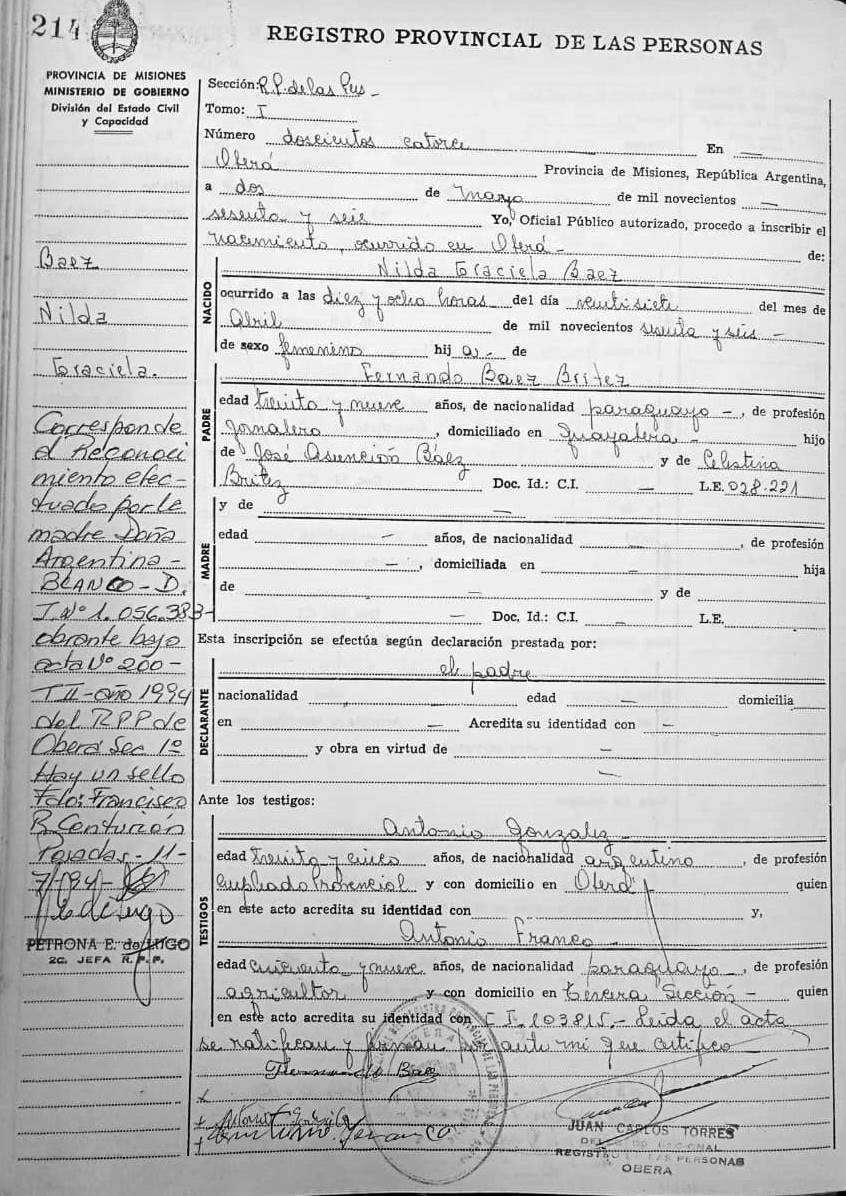 214
REGISTRO PROVINCIAL DE LAS PERSONAS
PROVINCIA DE MISIONES
MINISTERIO DE GOBIERNO
División del Estado Civil
y Capacidad
Baez
Nilda
Graciela.
Corresponde
al Reconoci
miento efec-
tuado por la
madre Doña
Argentina -
BLANCO - D.
I. Nº 1.056.383-
obrante bajo
acta Nº 200 -
T II - año 1994
del RPP de
Oberá Sec 1º
Hay un sello
Fdo: Francisco
R. Centurión
Posadas - 11-
7/94-
PETRONA E. de LUGO
2a. JEFA R. P. P.
Sección: R.P. de las Pers -
Tomo: I
Número doscientos catorce — En —
Oberá Provincia de Misiones, República Argentina,
a dos de Mayo de mil novecientos —
sesenta y seis Yo, Oficial Público autorizado, procedo a inscribir el
nacimiento, ocurrido en Oberá - de:
NACIDO
Nilda Graciela Baez
ocurrido a las diez y ocho horas del día veintisiete del mes de
Abril de mil novecientos sesenta y seis -
de sexo femenino hij a - de
PADRE
Fernando Baez Britez
edad treinta y nueve años, de nacionalidad paraguayo - , de profesión
jornalero , domiciliado en Guayabera - hijo
de José Asunción Báez y de Celestina
Britez Doc. Id.: C.I. — L.E. 028.221
MADRE
y de —
edad — años, de nacionalidad — , de profesión
— , domiciliada en — hija
de — y de
— Doc. Id.: C.I. — L.E.
Esta inscripción se efectúa según declaración prestada por:
DECLARANTE
el padre
nacionalidad edad — domicilia
en — Acredita su identidad con —
y obra en virtud de —
—
Ante los testigos:
TESTIGOS
Antonio Gonzalez -
edad treinta y cinco años, de nacionalidad argentino , de profesión
empleado Provincial y con domicilio en Oberá quien
en este acto acredita su identidad con y,
Antonio Franco -
edad cincuenta y nueve años, de nacionalidad paraguayo -, de profesión
agricultor y con domicilio en tercera Sección - quien
en este acto acredita su identidad con C I. 103815.- Leída el acta
se ratifican y firman por ante mi que certifico
Fernando Baez
Antonio Franco
JUAN CARLOS TORRES
REGISTRO DE LAS PERSONAS
OBERA